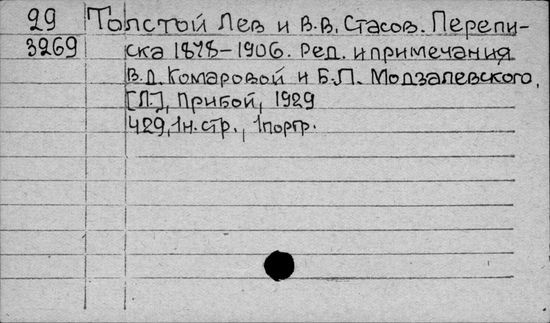 29 Толстой Лев и В.В. Стасов. Перепи-
3269 ска 1878-1906. Ред. и примечания
В.Д. Комаровой и Б.Л. Модзалевского,
[Л.], Прибой, 1929
429, 1 н. стр., 1 портр.